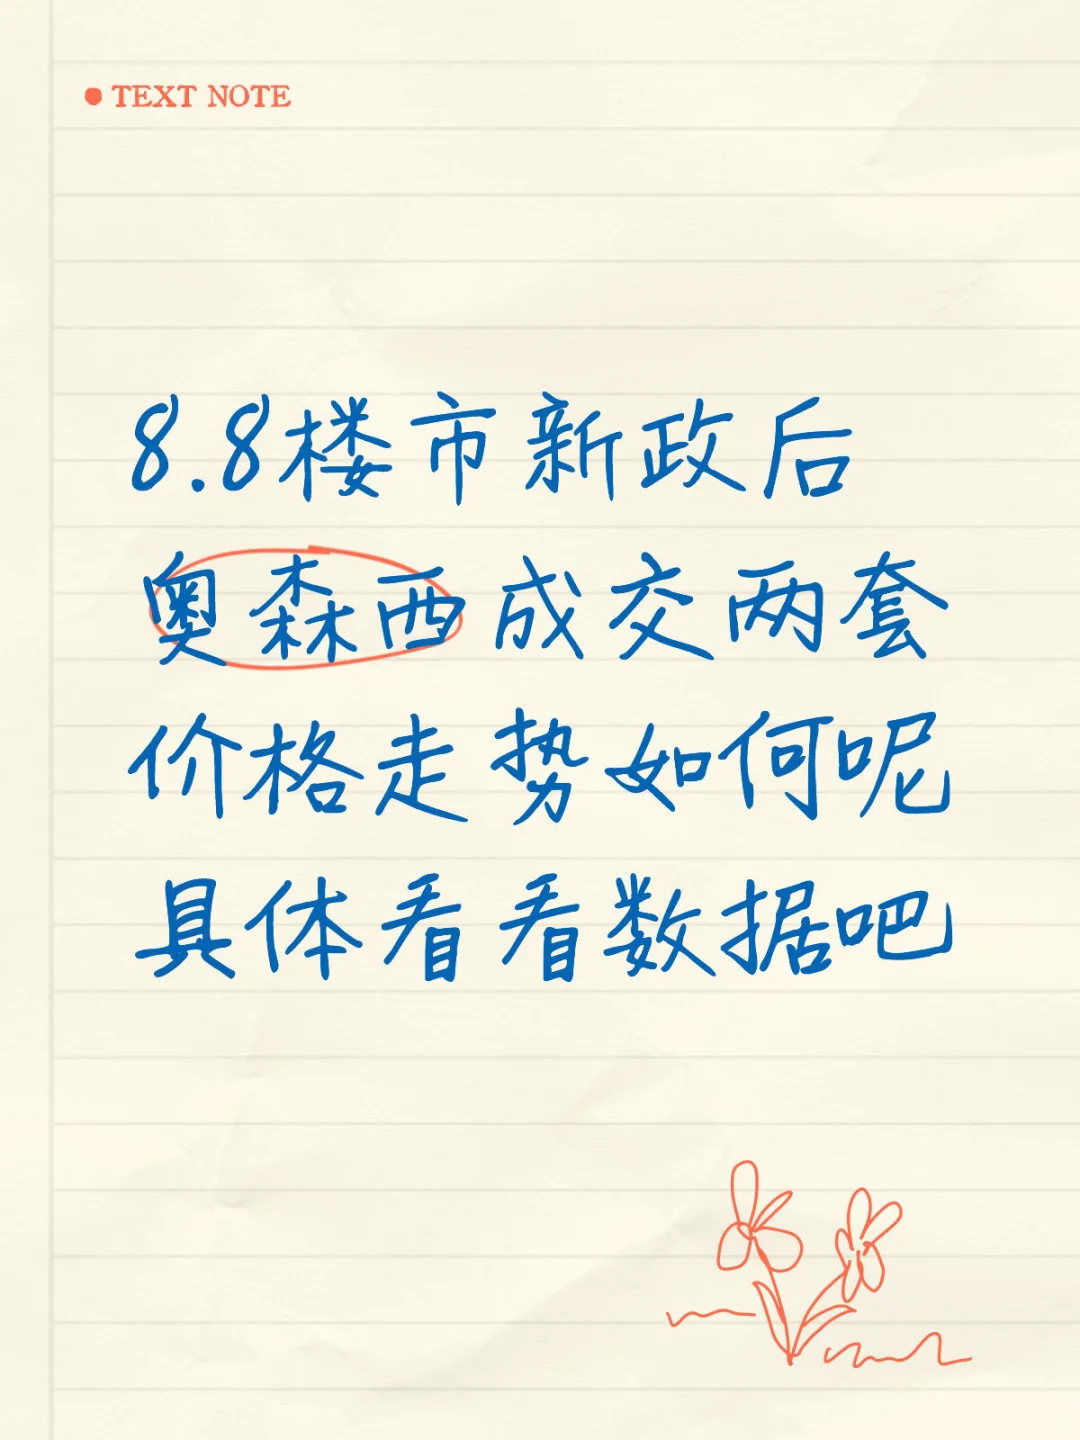 TEXT NOTE
8.8楼市新政后
奥森西成交两套
价格走势如何呢
具体看看数据吧